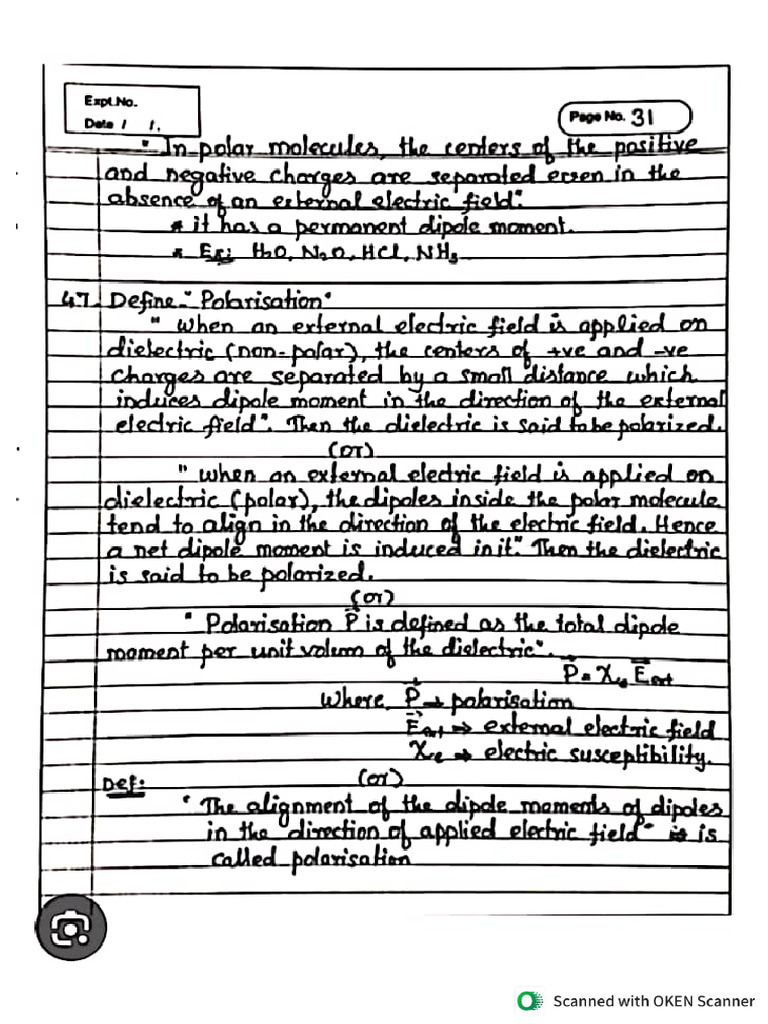 Expt.No.
Date / /.
Page No. 31
" In polar molecules, the centers of the positive
and negative charges are separated even in the
absence of an external electric field".
* it has a permanent dipole moment.
* Ex: H₂O, N₂O, HCl, NH₃
47. Define - "Polarisation"
" when an external electric field is applied on
dielectric (non-polar), the centers of +ve and -ve
charges are separated by a small distance which
induces dipole moment in the direction of the external
electric field". Then the dielectric is said to be polarized.
(or)
" when an external electric field is applied on
dielectric (polar), the dipoles inside the polar molecule
tend to align in the direction of the electric field. Hence
a net dipole moment is induced in it". Then the dielectric
is said to be polarized.
(or)
" Polarisation P⃗ is defined as the total dipole
moment per unit volum of the dielectric".
P⃗ = χₑ E⃗ext
Where, P⃗ → polarisation
E⃗ext → external electric field
χₑ → electric susceptibility.
Def: (or)
" The alignment of the dipole moments of dipoles
in the direction of applied electric field" is
called polarisation
Scanned with OKEN Scanner